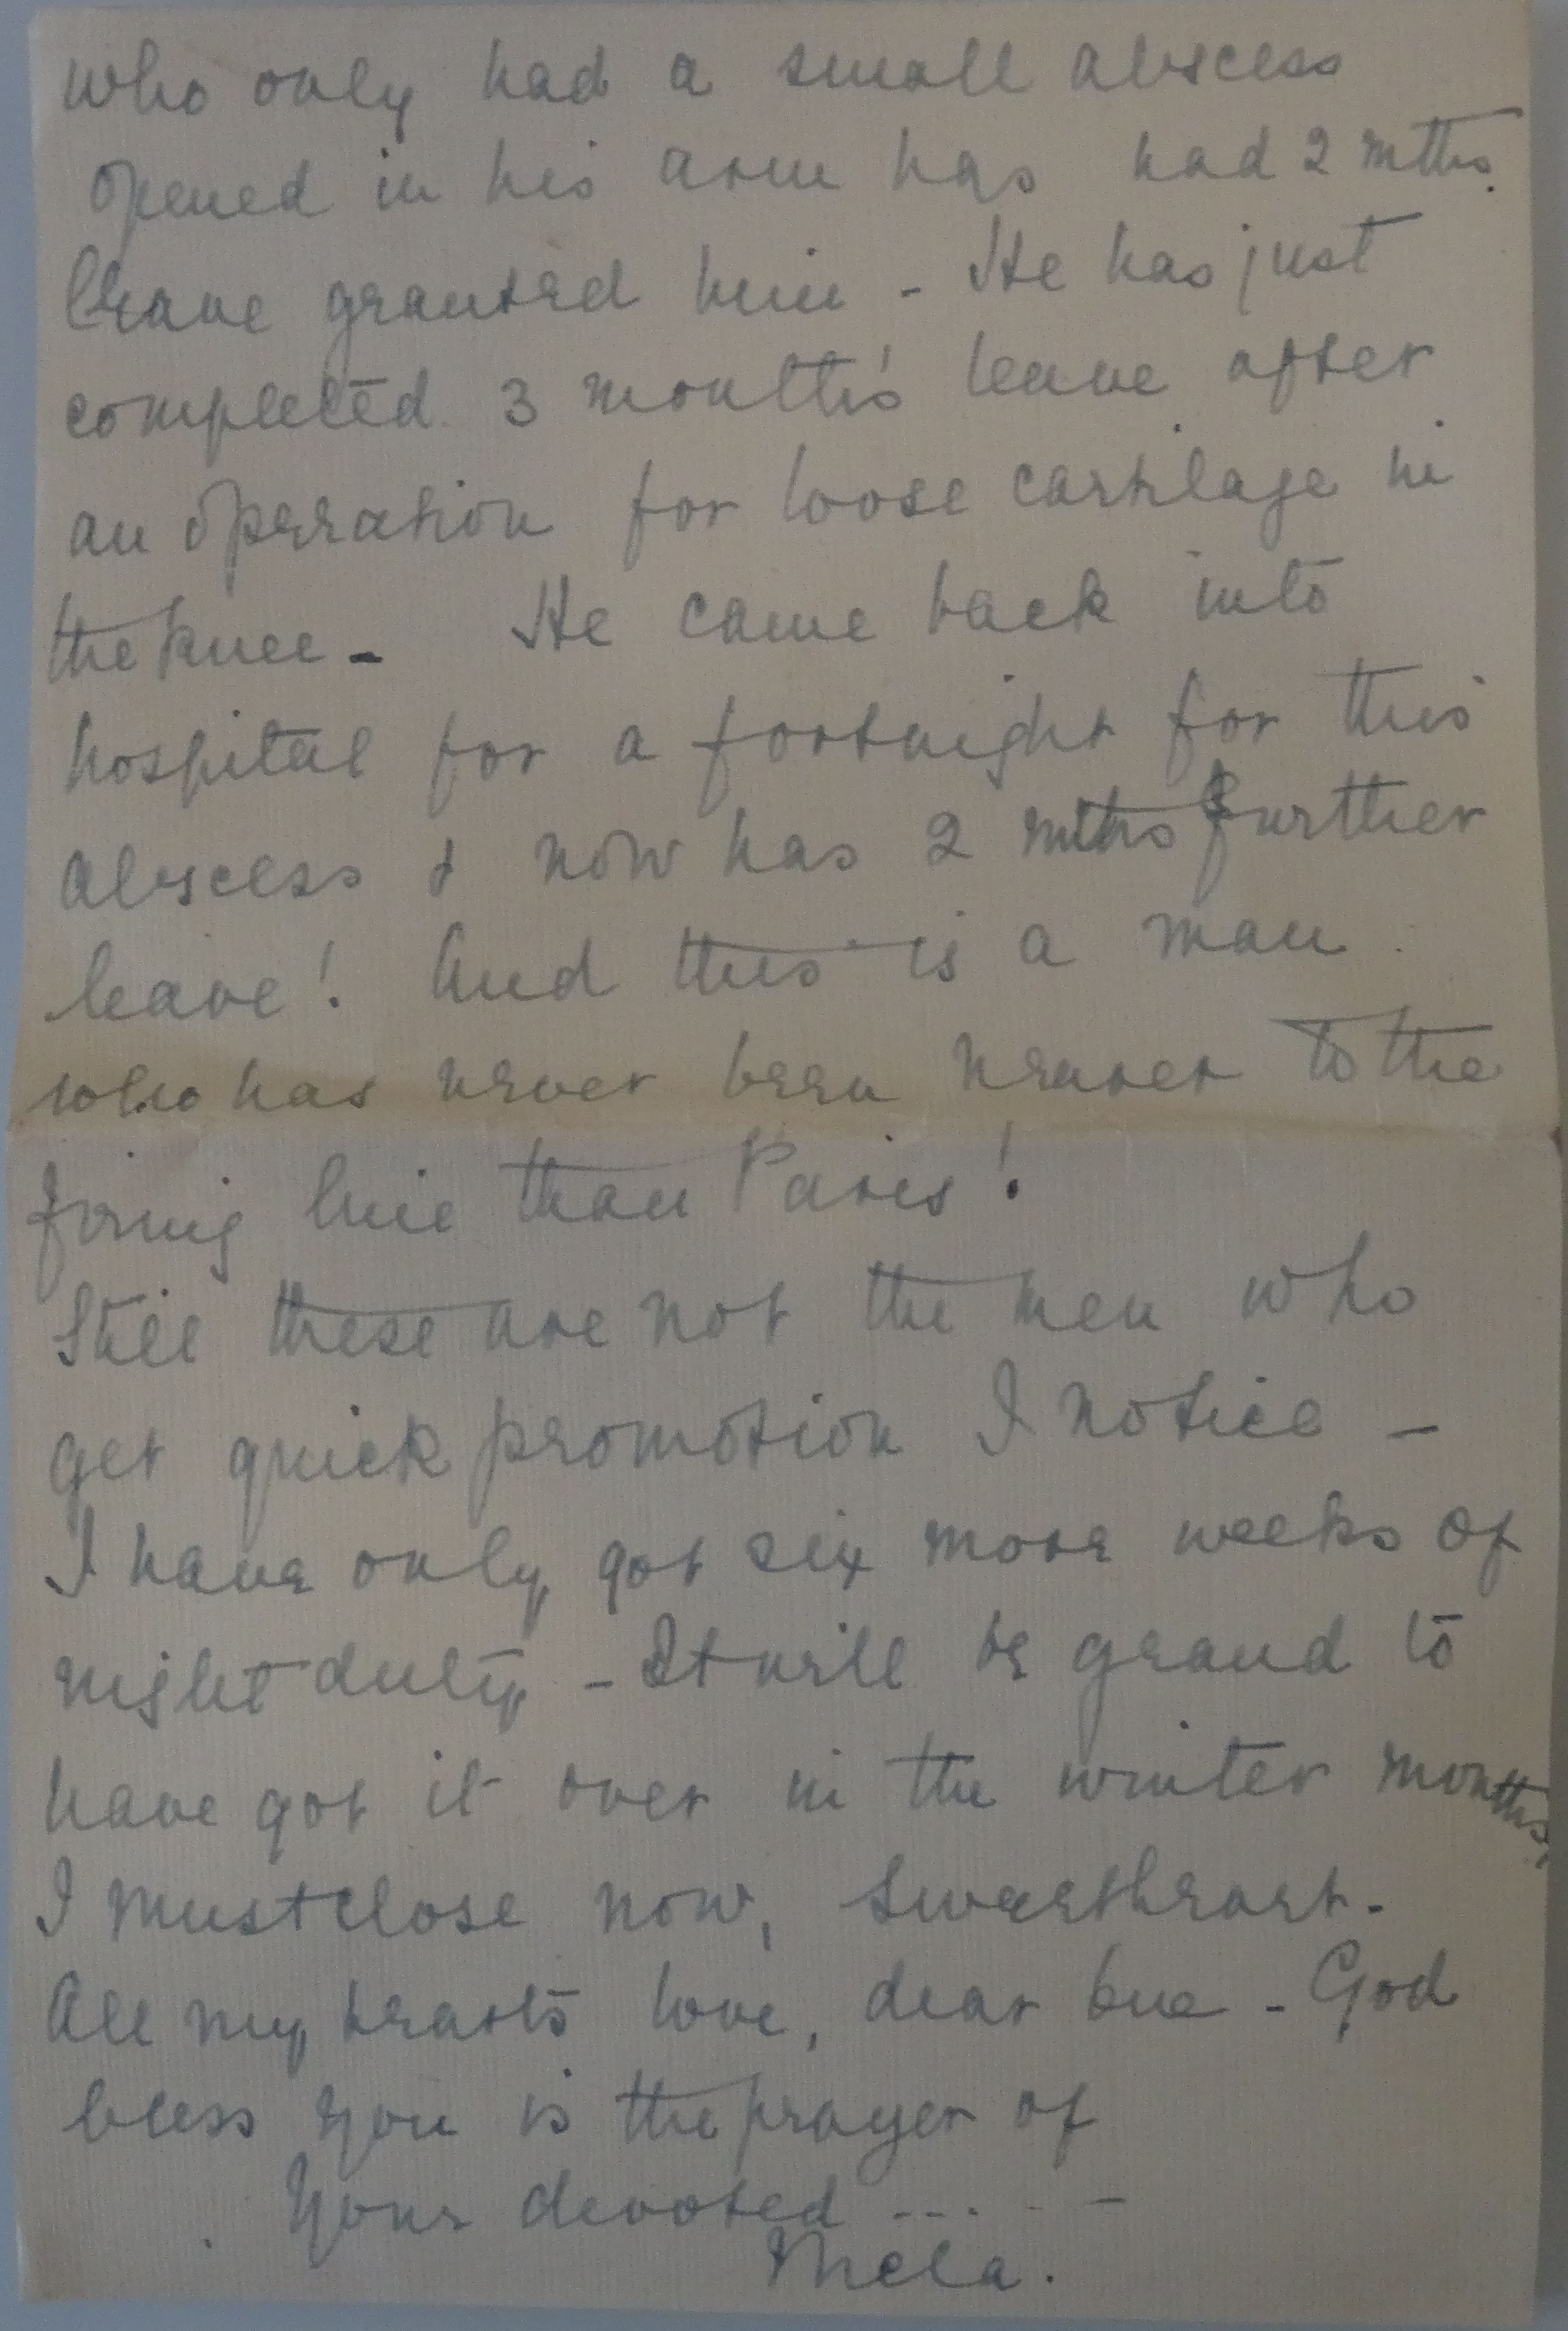 who only had a small abscess
opened in his arm has had 2 mths.
leave granted him - He has just
completed 3 month's leave after
an operation for loose cartilage in
the knee - He came back into
hospital for a fortnight for this
abscess & now has 2 mths further
leave! And this is a man
who has never been nearer to the
firing line than Paris!
Still these are not the men who
get quick promotion I notice -
I have only got six more weeks of
night duty - It will be grand to
have got it over in the winter months,
I must close now, sweetheart.
All my heart's love, dear one - God
bless you is the prayer of
Your devoted ... - -
Mela.